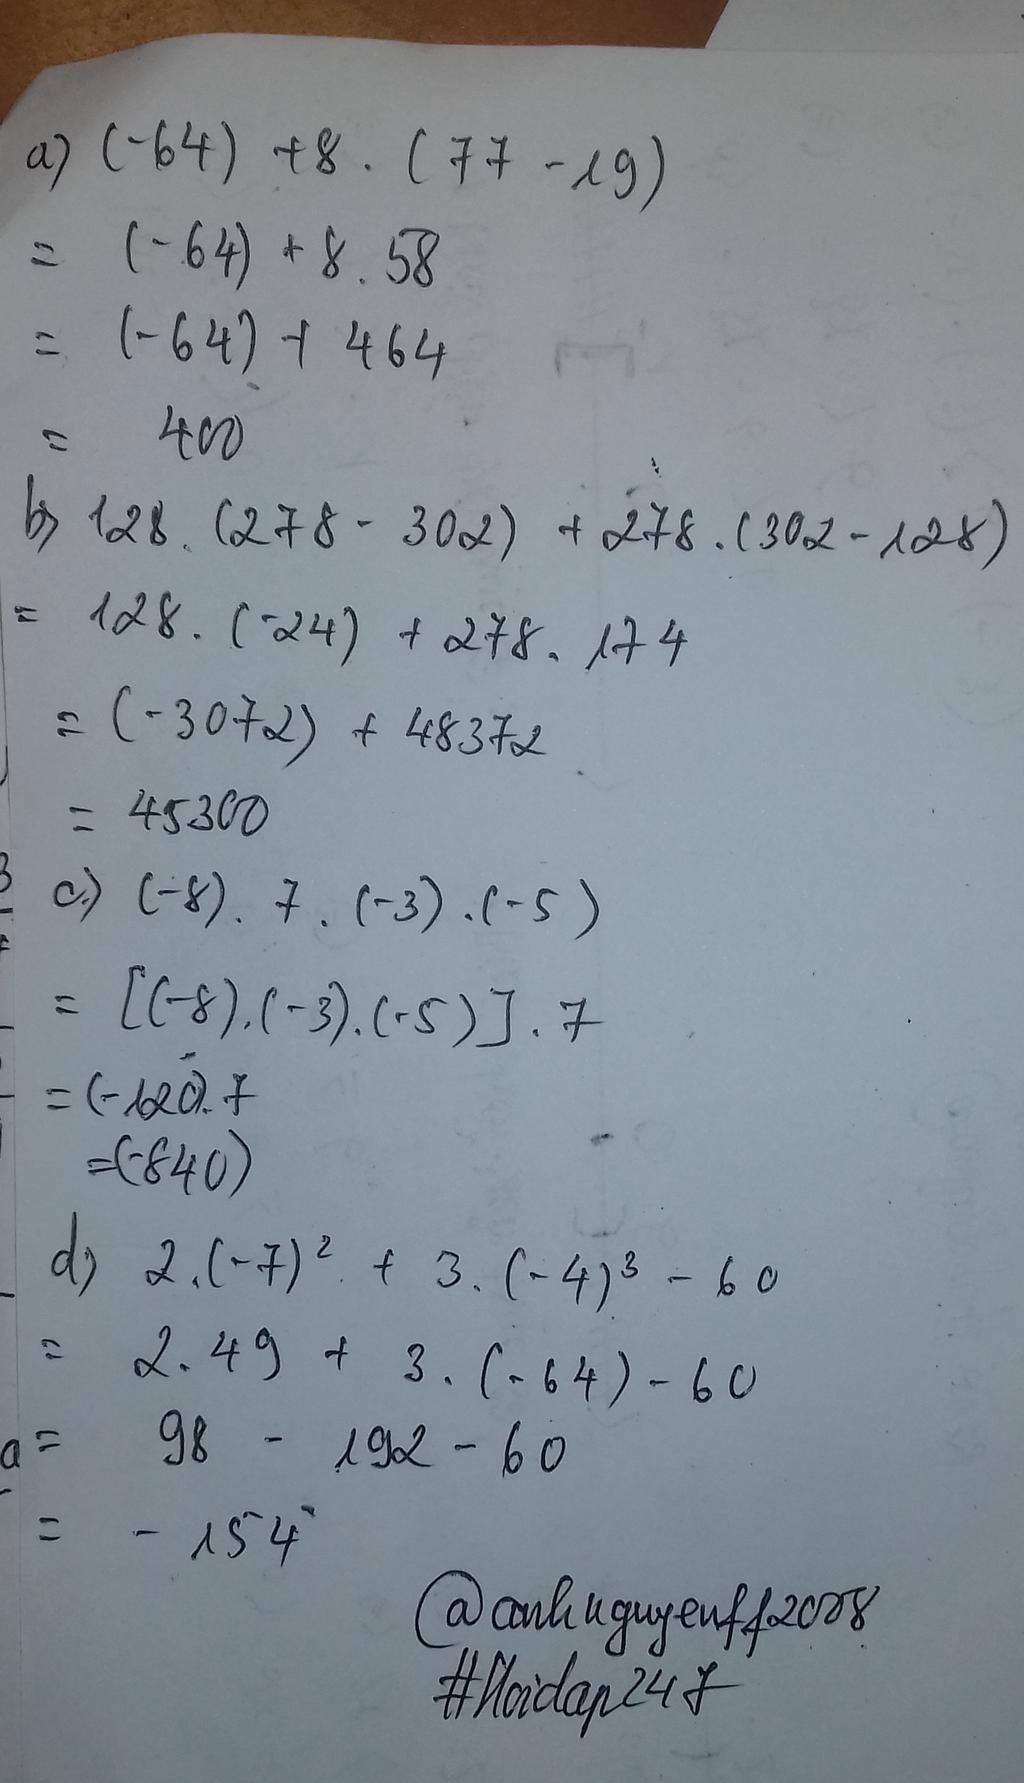 a) (-64) + 8 . (77 - 19)
= (-64) + 8 . 58
= (-64) + 464
= 400
b) 128 . (278 - 302) + 278 . (302 - 128)
= 128 . (-24) + 278 . 174
= (-3072) + 48372
= 45300
c) (-8) . 7 . (-3) . (-5)
= [(-8) . (-3) . (-5)] . 7
= (-120) . 7
= (-840)
d) 2 . (-7)² + 3 . (-4)³ - 60
= 2 . 49 + 3 . (-64) - 60
= 98 - 192 - 60
= - 154
@anhnguyenff2008
#Hoidap247